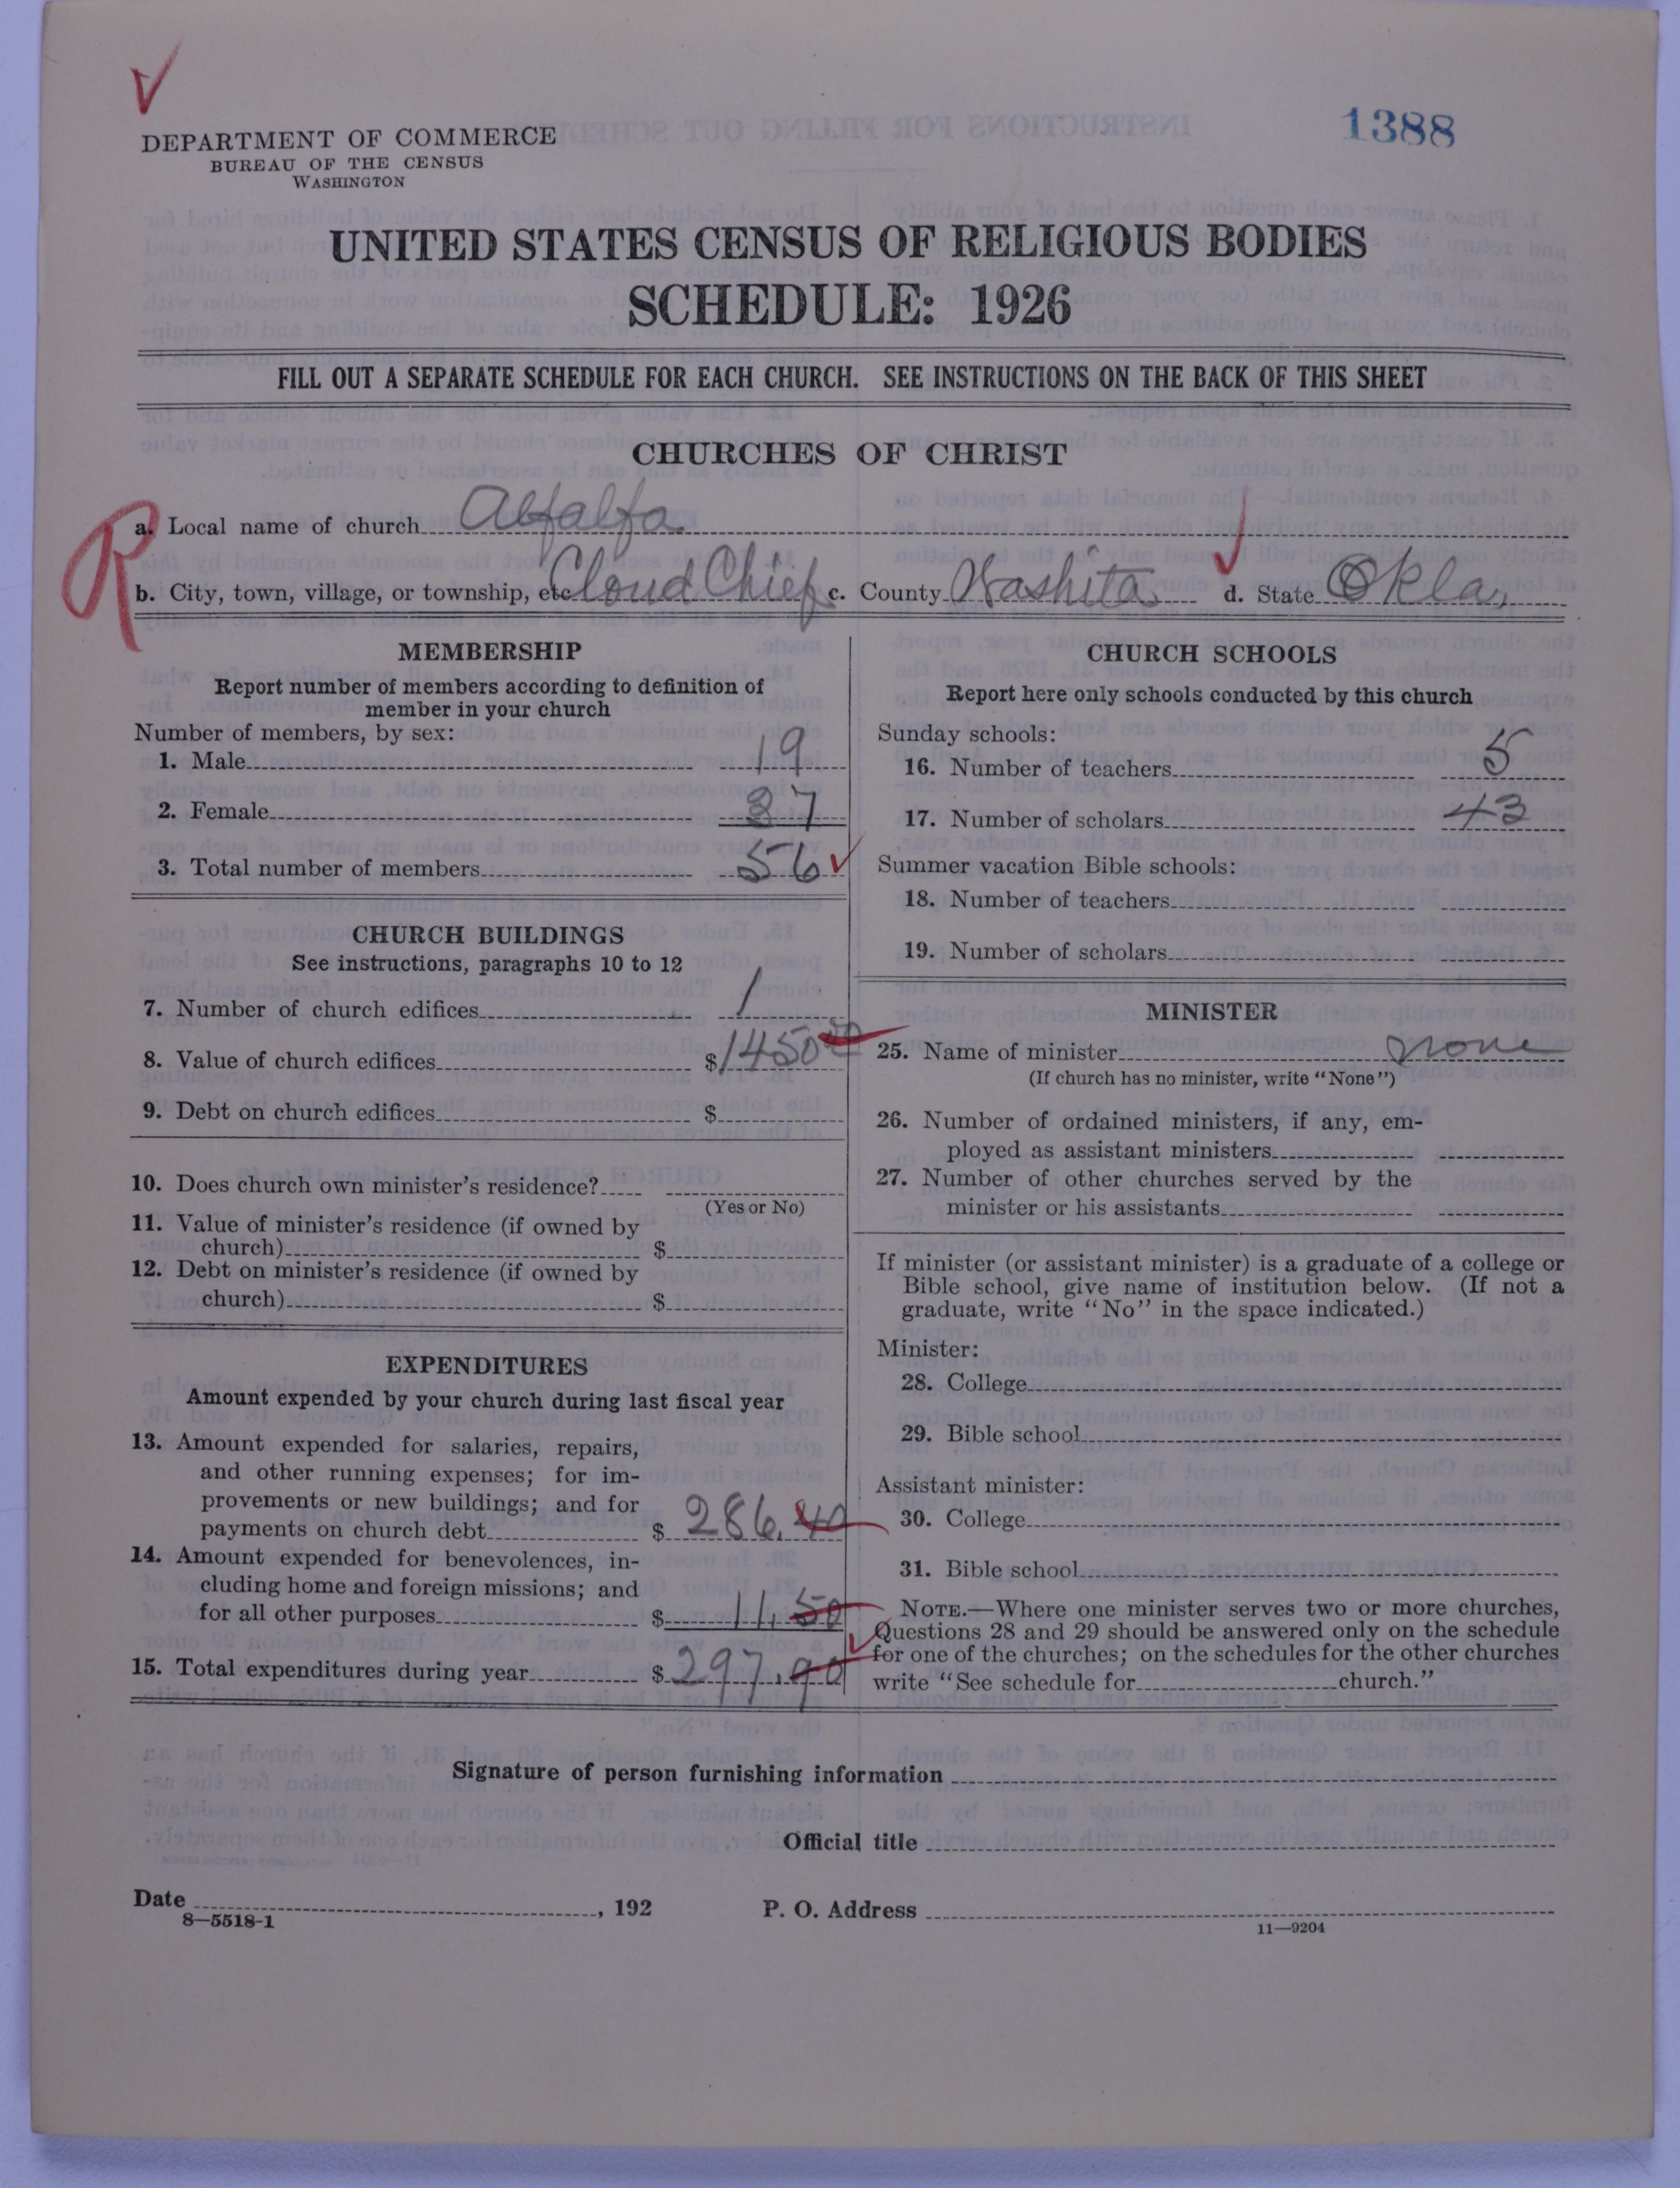 1388
DEPARTMENT OF COMMERCE
BUREAU OF THE CENSUS
WASHINGTON
UNITED STATES CENSUS OF RELIGIOUS BODIES
SCHEDULE: 1926
FILL OUT A SEPARATE SCHEDULE FOR EACH CHURCH. SEE INSTRUCTIONS ON THE BACK OF THIS SHEET
CHURCHES OF CHRIST
R
a. Local name of church Alfalfa
b. City, town, village, or township, etc Cloud Chief c. County Washita d. State Okla,
MEMBERSHIP
Report number of members according to definition of
member in your church
Number of members, by sex:
1. Male 19
2. Female 37
3. Total number of members 56
CHURCH BUILDINGS
See instructions, paragraphs 10 to 12
7. Number of church edifices 1
8. Value of church edifices $1450 00
9. Debt on church edifices $
10. Does church own minister's residence?
(Yes or No)
11. Value of minister's residence (if owned by
church) $
12. Debt on minister's residence (if owned by
church) $
EXPENDITURES
Amount expended by your church during last fiscal year
13. Amount expended for salaries, repairs,
and other running expenses; for im-
provements or new buildings; and for
payments on church debt $ 286.40
14. Amount expended for benevolences, in-
cluding home and foreign missions; and
for all other purposes $ 11.50
15. Total expenditures during year $ 297.90
CHURCH SCHOOLS
Report here only schools conducted by this church
Sunday schools:
16. Number of teachers 5
17. Number of scholars 43
Summer vacation Bible schools:
18. Number of teachers
19. Number of scholars
MINISTER
25. Name of minister none
(If church has no minister, write "None")
26. Number of ordained ministers, if any, em-
ployed as assistant ministers
27. Number of other churches served by the
minister or his assistants
If minister (or assistant minister) is a graduate of a college or
Bible school, give name of institution below. (If not a
graduate, write "No" in the space indicated.)
Minister:
28. College
29. Bible school
Assistant minister:
30. College
31. Bible school
NOTE.—Where one minister serves two or more churches,
Questions 28 and 29 should be answered only on the schedule
for one of the churches; on the schedules for the other churches
write "See schedule for church."
Signature of person furnishing information
Official title
Date , 192 P. O. Address
8—5518-1
11—9204